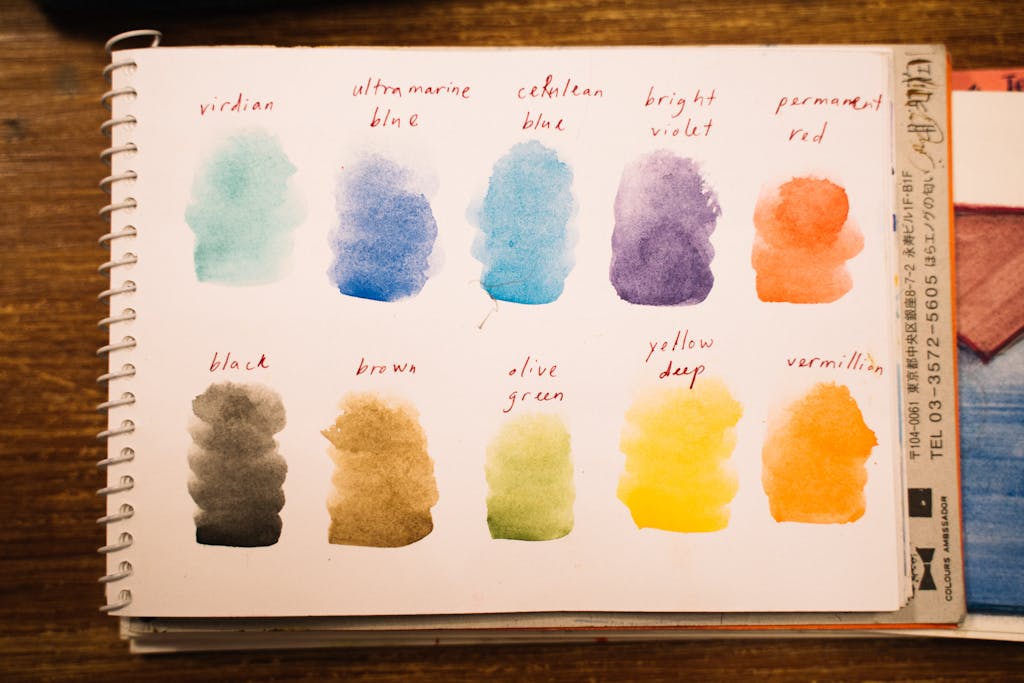 virdian
ultramarine
blue
cerulean
blue
bright
violet
permanent
red
black
brown
olive
green
yellow
deep
vermillion
〒104-0061 東京都中央区銀座8-7-2 永寿ビル1F・B1F
TEL 03-3572-5605 はらエノグの匂い
COLOURS AMBSSADOR